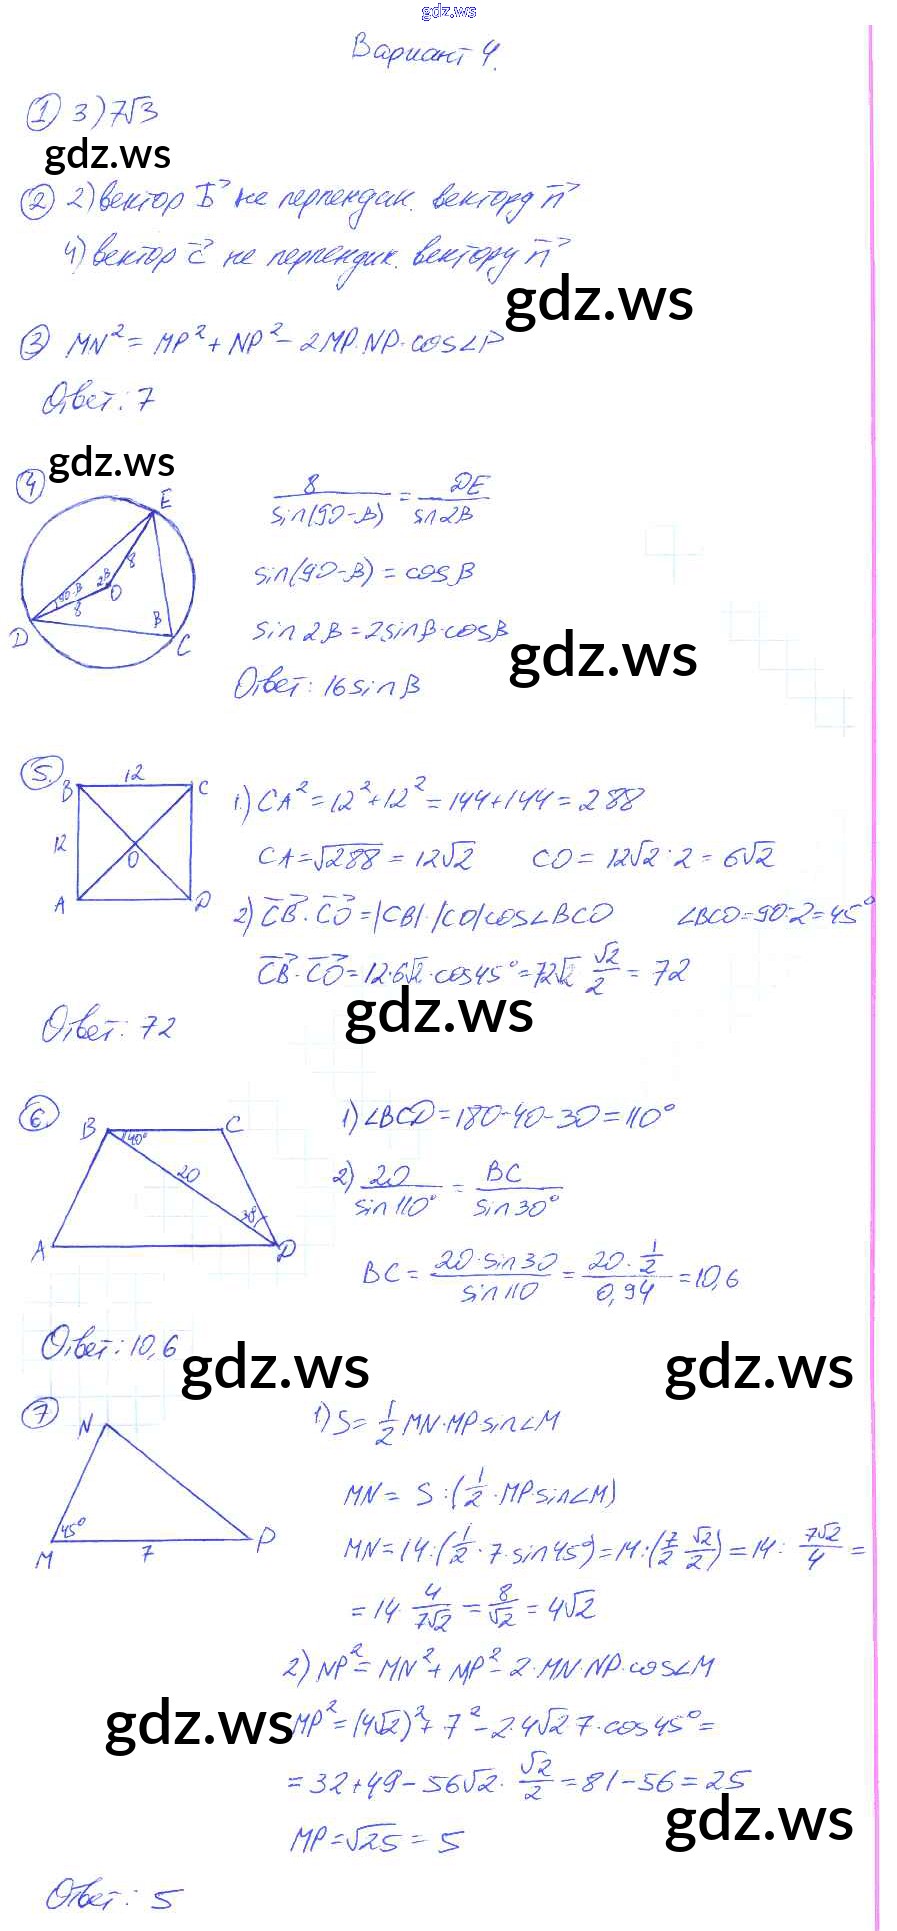 gdz.ws
Вариант 4.
① 3) 7√3
gdz.ws
② 2) вектор b⃗ не перпендик. вектору n⃗
4) вектор c⃗ не перпендик. вектору n⃗
gdz.ws
③ MN² = MP² + NP² - 2MP·NP·cos∠P
Ответ: 7
gdz.ws
④ 8/sin(90-β) = DE/sin2β
E
sin(90-β) = cosβ
8
2β
90-β
O
8
β
D
C
sin2β = 2sinβ·cosβ
gdz.ws
Ответ: 16sinβ
⑤ B 12 C
1.) CA² = 12² + 12² = 144 + 144 = 288
12
O
CA = √288 = 12√2 CO = 12√2 : 2 = 6√2
A D
2) CB⃗ · CO⃗ = |CB|·|CO|cos∠BCO ∠BCO = 90:2 = 45°
CB⃗ · CO⃗ = 12·6√2·cos45° = 72√2 √2/2 = 72
gdz.ws
Ответ: 72
⑥ B C
1) ∠BCD = 180-40-30 = 110°
40°
20
2) 20/sin110° = BC/sin30°
30
A D
BC = 20·sin30/sin110 = 20·1/2/0,94 = 10,6
Ответ: 10,6
gdz.ws
gdz.ws
⑦ N
1) S = 1/2 MN·MP sin∠M
MN = S : (1/2 · MP sin∠M)
45°
M 7 P
MN = 14 : (1/2 · 7 · sin45°) = 14 : (7/2 √2/2) = 14 : 7√2/4 =
= 14 · 4/7√2 = 8/√2 = 4√2
2) NP² = MN² + MP² - 2·MN·NP·cos∠M
gdz.ws
MP² = (4√2)² + 7² - 2·4√2·7·cos45° =
= 32 + 49 - 56√2 · √2/2 = 81 - 56 = 25
gdz.ws
MP = √25 = 5
Ответ: 5